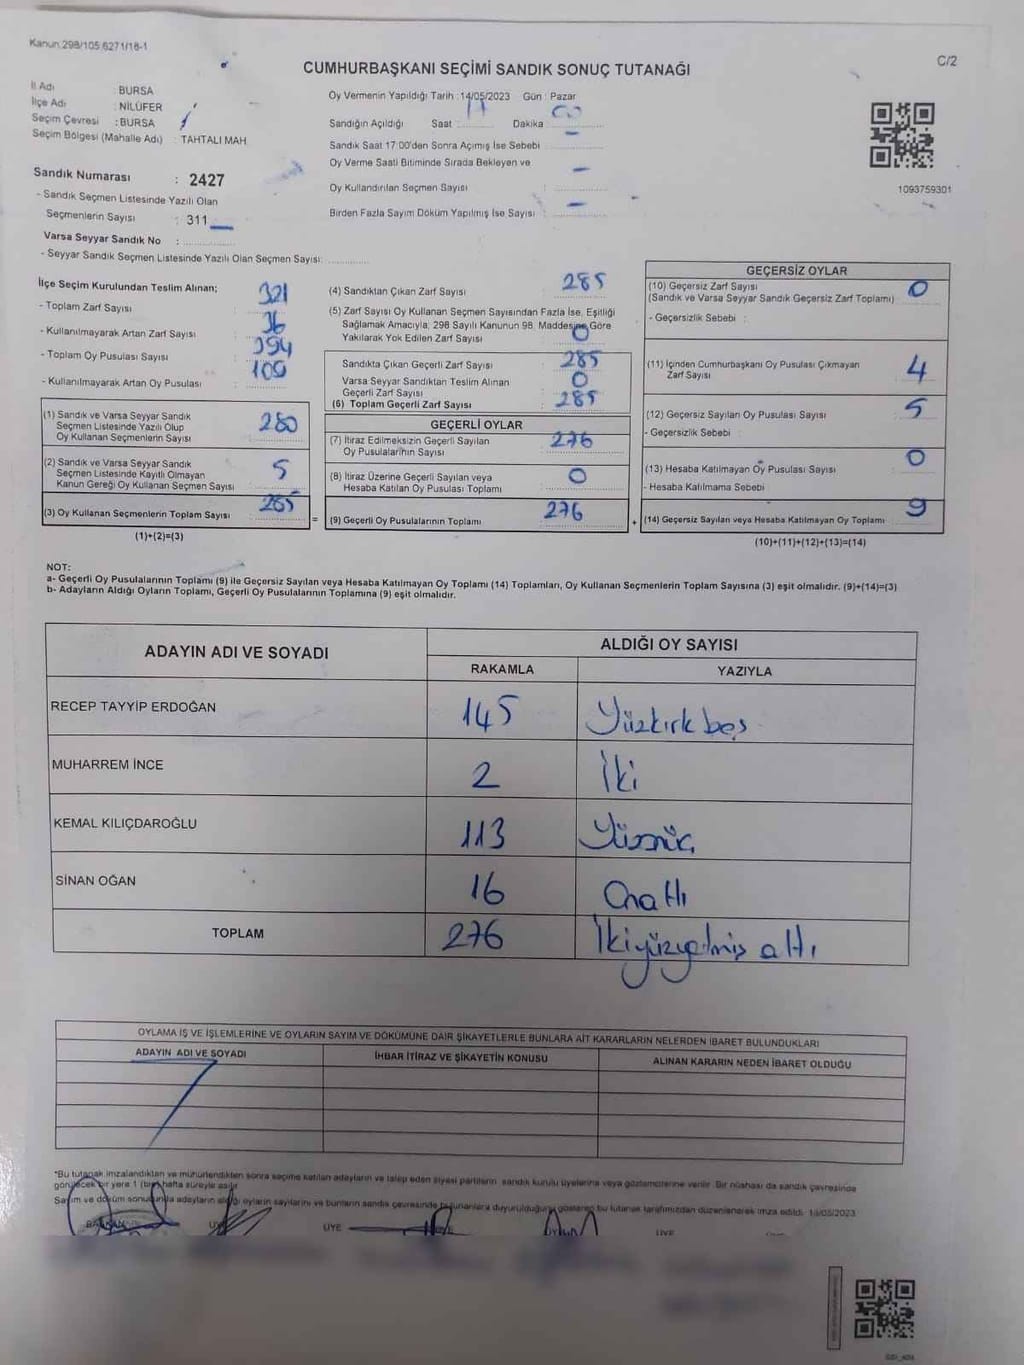 Kanun:298/105,6271/16-1
C/2
CUMHURBAŞKANI SEÇİMİ SANDIK SONUÇ TUTANAĞI
İl Adı : BURSA
İlçe Adı : NİLÜFER
Seçim Çevresi : BURSA
Seçim Bölgesi (Mahalle Adı) : TAHTALI MAH
Sandık Numarası : 2427
- Sandık Seçmen Listesinde Yazılı Olan
Seçmenlerin Sayısı : 311
Varsa Seyyar Sandık No :
- Seyyar Sandık Seçmen Listesinde Yazılı Olan Seçmen Sayısı:
Oy Vermenin Yapıldığı Tarih :14/05/2023 Gün : Pazar
Sandığın Açıldığı Saat : 17 Dakika : 00
Sandık Saat 17:00'den Sonra Açımış İse Sebebi
Oy Verme Saati Bitiminde Sırada Bekleyen ve
Oy Kullandırılan Seçmen Sayısı : -
Birden Fazla Sayım Döküm Yapılmış İse Sayısı : -
1093759301
İlçe Seçim Kurulundan Teslim Alınan;
- Toplam Zarf Sayısı : 321
- Kullanılmayarak Artan Zarf Sayısı : 36
- Toplam Oy Pusulası Sayısı : 394
- Kullanılmayarak Artan Oy Pusulası : 109
(1) Sandık ve Varsa Seyyar Sandık
Seçmen Listesinde Yazılı Olup
Oy Kullanan Seçmenlerin Sayısı : 280
(2) Sandık ve Varsa Seyyar Sandık
Seçmen Listesinde Kayıtlı Olmayan
Kanun Gereği Oy Kullanan Seçmen Sayısı : 5
(3) Oy Kullanan Seçmenlerin Toplam Sayısı : 285
(1)+(2)=(3)
(4) Sandıktan Çıkan Zarf Sayısı : 285
(5) Zarf Sayısı Oy Kullanan Seçmen Sayısından Fazla İse, Eşitliği
Sağlamak Amacıyla; 298 Sayılı Kanunun 98. Maddesine Göre
Yakılarak Yok Edilen Zarf Sayısı : 0
Sandıkta Çıkan Geçerli Zarf Sayısı : 285
Varsa Seyyar Sandıktan Teslim Alınan
Geçerli Zarf Sayısı : 0
(6) Toplam Geçerli Zarf Sayısı : 285
GEÇERLİ OYLAR
(7) İtiraz Edilmeksizin Geçerli Sayılan
Oy Pusulalarının Sayısı : 276
(8) İtiraz Üzerine Geçerli Sayılan veya
Hesaba Katılan Oy Pusulası Toplamı : 0
= (9) Geçerli Oy Pusulalarının Toplamı : 276
GEÇERSİZ OYLAR
(10) Geçersiz Zarf Sayısı
(Sandık ve Varsa Seyyar Sandık Geçersiz Zarf Toplamı) 0
- Geçersizlik Sebebi :
(11) İçinden Cumhurbaşkanı Oy Pusulası Çıkmayan
Zarf Sayısı : 4
(12) Geçersiz Sayılan Oy Pusulası Sayısı : 5
- Geçersizlik Sebebi :
(13) Hesaba Katılmayan Oy Pusulası Sayısı : 0
- Hesaba Katılmama Sebebi
+ (14) Geçersiz Sayılan veya Hesaba Katılmayan Oy Toplamı : 9
(10)+(11)+(12)+(13)=(14)
NOT:
a- Geçerli Oy Pusulalarının Toplamı (9) ile Geçersiz Sayılan veya Hesaba Katılmayan Oy Toplamı (14) Toplamları, Oy Kullanan Seçmenlerin Toplam Sayısına (3) eşit olmalıdır. (9)+(14)=(3)
b- Adayların Aldığı Oyların Toplamı, Geçerli Oy Pusulalarının Toplamına (9) eşit olmalıdır.
ADAYIN ADI VE SOYADI
ALDIĞI OY SAYISI
RAKAMLA YAZIYLA
RECEP TAYYİP ERDOĞAN 145 Yüzkırk beş
MUHARREM İNCE 2 İki
KEMAL KILIÇDAROĞLU 113 Yüzonüç
SİNAN OĞAN 16 Onaltı
TOPLAM 276 İkiyüzyetmiş altı
OYLAMA İŞ VE İŞLEMLERİNE VE OYLARIN SAYIM VE DÖKÜMÜNE DAİR ŞİKAYETLERLE BUNLARA AİT KARARLARIN NELERDEN İBARET BULUNDUKLARI
ADAYIN ADI VE SOYADI İHBAR İTİRAZ VE ŞİKAYETİN KONUSU ALINAN KARARIN NEDEN İBARET OLDUĞU
*Bu tutanak imzalandıktan ve mühürlendikten sonra seçime katılan adayların ve talep eden siyasi partilerin sandık kurulu üyelerine veya gözlemcilerine verilir. Bir nüshası da sandık çevresinde
görülecek bir yere 1 (bir) hafta süreyle asılır
Sayım ve döküm sonucunda adayların aldığı oyların sayılarını ve bunların sandık çevresinde bulunanlara duyurulduğunu gösteren bu tutanak tarafımızdan düzenlenerek imza edildi.
BAŞKAN ÜYE ÜYE ÜYE